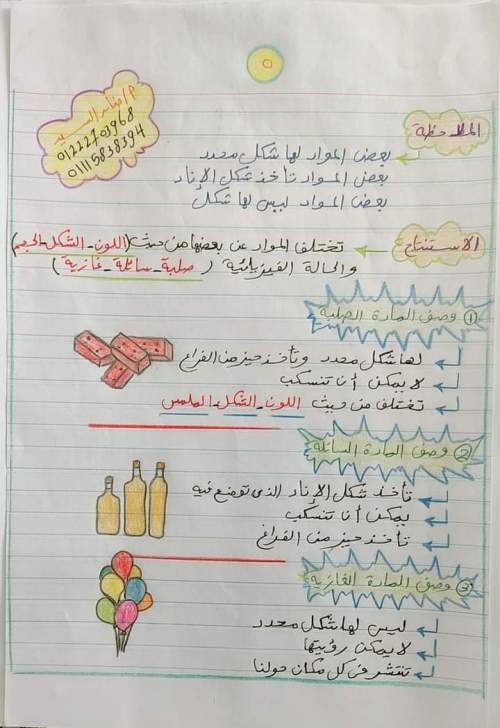 ٥
م/ صابر السيد
01222703968
01115838394
الملاحظة
بعض المواد لها شكل محدد
بعض المواد تأخذ شكل الإناء
بعض المواد ليس لها شكل
الاستنتاج
تختلف المواد عن بعضها من حيث (اللون - الشكل - الحجم)
والحالة الفيزيائية (صلبة - سائلة - غازية)
① وصف المادة الصلبة
لها شكل محدد وتأخذ حيز من الفراغ
لا يمكن أن تنسكب
تختلف من حيث اللون - الشكل - الملمس
② وصف المادة السائلة
تأخذ شكل الإناء الذي توضع فيه
يمكن أن تنسكب
تأخذ حيز من الفراغ
③ وصف المادة الغازية
ليس لها شكل محدد
لا يمكن رؤيتها
تنتشر في كل مكان حولنا